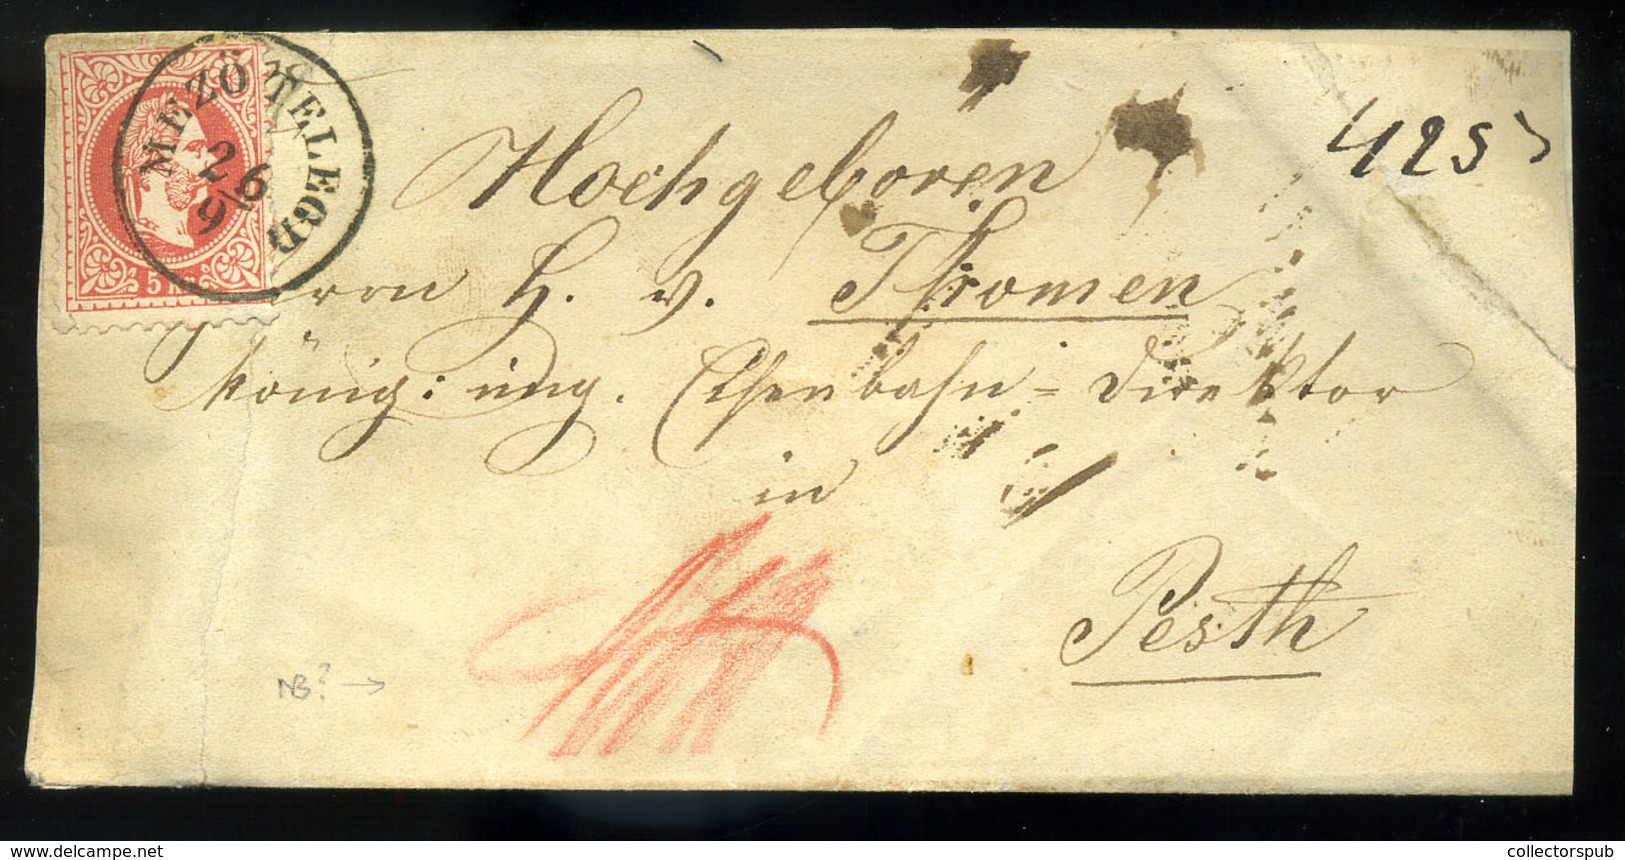 MEZÖ TELEGD
26
9
5 kr
425
Hochgeboren
Herrn H. v. Thomen
könig: ung. Eisenbahn = Direktor
in
Pesth
NB? →
delcampe.net
collectorspub